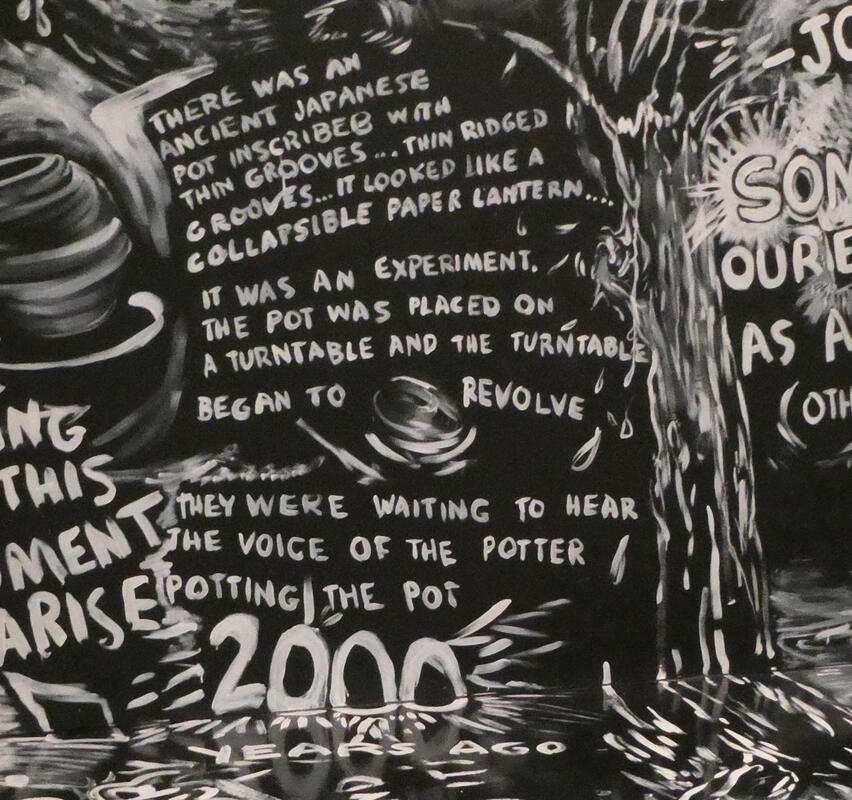 THERE WAS AN
ANCIENT JAPANESE
POT INSCRIBED WITH
THIN GROOVES... THIN RIDGED
GROOVES... IT LOOKED LIKE A
COLLAPSIBLE PAPER LANTERN....
IT WAS AN EXPERIMENT.
THE POT WAS PLACED ON
A TURNTABLE AND THE TURNTABLE
BEGAN TO REVOLVE
THEY WERE WAITING TO HEAR
THE VOICE OF THE POTTER
POTTING THE POT
2000
YEARS AGO
THIS
ARISE
-JO
SON
OUR E
AS A
(OTH